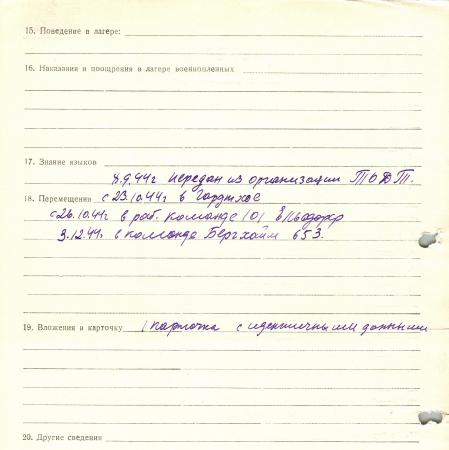 15. Поведение в лагере:
16. Наказания и поощрения в лагере военнопленных
17. Знание языков
8.9.44г передан из организации ТОДТ.
18. Перемещения с 23.10.44г в
с 26.10.44г в раб. команде 101
9.12.44г. в команде Бергхайм 653.
19. Вложения в карточку 1 карточка с идентичными данными
20. Другие сведения